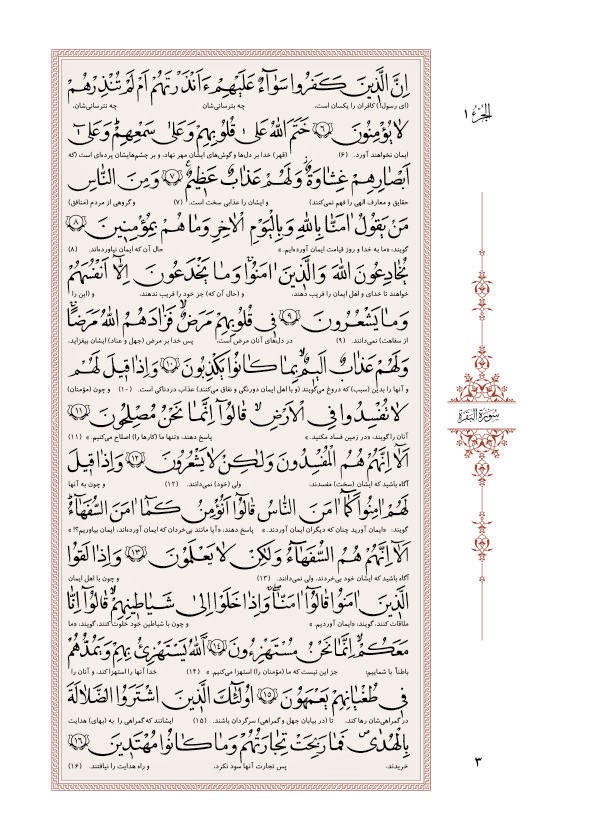 الجزء ١
إِنَّ الَّذِينَ كَفَرُوا سَوَاءٌ عَلَيْهِمْ ءَأَنْذَرْتَهُمْ أَمْ لَمْ تُنْذِرْهُمْ
(ای رسول!) کافران را یکسان است، چه بترسانی‌شان چه نترسانی‌شان،
لَا يُؤْمِنُونَ ﴿٦﴾ خَتَمَ اللَّهُ عَلَىٰ قُلُوبِهِمْ وَعَلَىٰ سَمْعِهِمْ وَعَلَىٰ
ایمان نخواهند آورد. (۶) (قهر) خدا بر دل‌ها و گوش‌های ایشان مهر نهاد، و بر چشم‌هایشان پرده‌ای است (که
أَبْصَارِهِمْ غِشَاوَةٌ وَلَهُمْ عَذَابٌ عَظِيمٌ ﴿٧﴾ وَمِنَ النَّاسِ
حقایق و معارف الهی را فهم نمی‌کنند) و ایشان را عذابی سخت است. (۷) و گروهی از مردم (منافق)
مَنْ يَقُولُ ءَامَنَّا بِاللَّهِ وَبِالْيَوْمِ الْآخِرِ وَمَا هُمْ بِمُؤْمِنِينَ ﴿٨﴾
گویند، «ما به خدا و روز قیامت ایمان آورده‌ایم.» حال آن که ایمان نیاورده‌اند. (۸)
يُخَادِعُونَ اللَّهَ وَالَّذِينَ ءَامَنُوا وَمَا يَخْدَعُونَ إِلَّا أَنْفُسَهُمْ
خواهند تا خدای و اهل ایمان را فریب دهند، و (حال آن که) جز خود را فریب ندهند، و (این را
وَمَا يَشْعُرُونَ ﴿٩﴾ فِي قُلُوبِهِمْ مَرَضٌ فَزَادَهُمُ اللَّهُ مَرَضًا
از سفاهت) نمی‌دانند. (۹) در دل‌های آنان مرض است، پس خدا بر مرض (جهل و عناد) ایشان بیفزاید،
وَلَهُمْ عَذَابٌ أَلِيمٌ بِمَا كَانُوا يَكْذِبُونَ ﴿١٠﴾ وَإِذَا قِيلَ لَهُمْ
و آنها را بدین (سبب) که دروغ می‌گویند (و با اهل ایمان دورنگی و نفاق می‌کنند) عذاب دردناکی است. (۱۰) و چون (مؤمنان)
لَا تُفْسِدُوا فِي الْأَرْضِ قَالُوا إِنَّمَا نَحْنُ مُصْلِحُونَ ﴿١١﴾
آنان را گویند، «در زمین فساد مکنید.» پاسخ دهند، «تنها ما (کارها را) اصلاح می‌کنیم.» (۱۱)
سورة البقرة
أَلَا إِنَّهُمْ هُمُ الْمُفْسِدُونَ وَلَٰكِنْ لَا يَشْعُرُونَ ﴿١٢﴾ وَإِذَا قِيلَ
آگاه باشید که ایشان (سخت) مفسدند، ولی (خود) نمی‌دانند. (۱۲) و چون به آنها
لَهُمْ ءَامِنُوا كَمَا ءَامَنَ النَّاسُ قَالُوا أَنُؤْمِنُ كَمَا ءَامَنَ السُّفَهَاءُ
گویند: «ایمان آورید چنان که دیگران ایمان آوردند.» پاسخ دهند، «آیا مانند بی‌خردان که ایمان آورده‌اند، ایمان بیاوریم؟!»
أَلَا إِنَّهُمْ هُمُ السُّفَهَاءُ وَلَٰكِنْ لَا يَعْلَمُونَ ﴿١٣﴾ وَإِذَا لَقُوا
آگاه باشید که ایشان خود بی‌خردند، ولی نمی‌دانند. (۱۳) و چون با اهل ایمان
الَّذِينَ ءَامَنُوا قَالُوا ءَامَنَّا وَإِذَا خَلَوْا إِلَىٰ شَيَاطِينِهِمْ قَالُوا إِنَّا
ملاقات کنند، گویند، «ایمان آوردیم.» و چون با شیاطین خود خلوت کنند، گویند، «ما
مَعَكُمْ إِنَّمَا نَحْنُ مُسْتَهْزِءُونَ ﴿١٤﴾ اللَّهُ يَسْتَهْزِئُ بِهِمْ وَيَمُدُّهُمْ
باطناً با شماییم؛ جز این نیست که ما (مؤمنان را) استهزا می‌کنیم.» (۱۴) خدا آنها را استهزا کند، و آنان را
فِي طُغْيَانِهِمْ يَعْمَهُونَ ﴿١٥﴾ أُولَٰئِكَ الَّذِينَ اشْتَرَوُا الضَّلَالَةَ
در گمراهی‌شان رها کند، تا (در بیابان جهل و گمراهی) سرگردان باشند. (۱۵) ایشانند که گمراهی را به (بهای) هدایت
بِالْهُدَىٰ فَمَا رَبِحَتْ تِجَارَتُهُمْ وَمَا كَانُوا مُهْتَدِينَ ﴿١٦﴾
خریدند، پس تجارت آنها سود نکرد، و راه هدایت را نیافتند. (۱۶)
٣